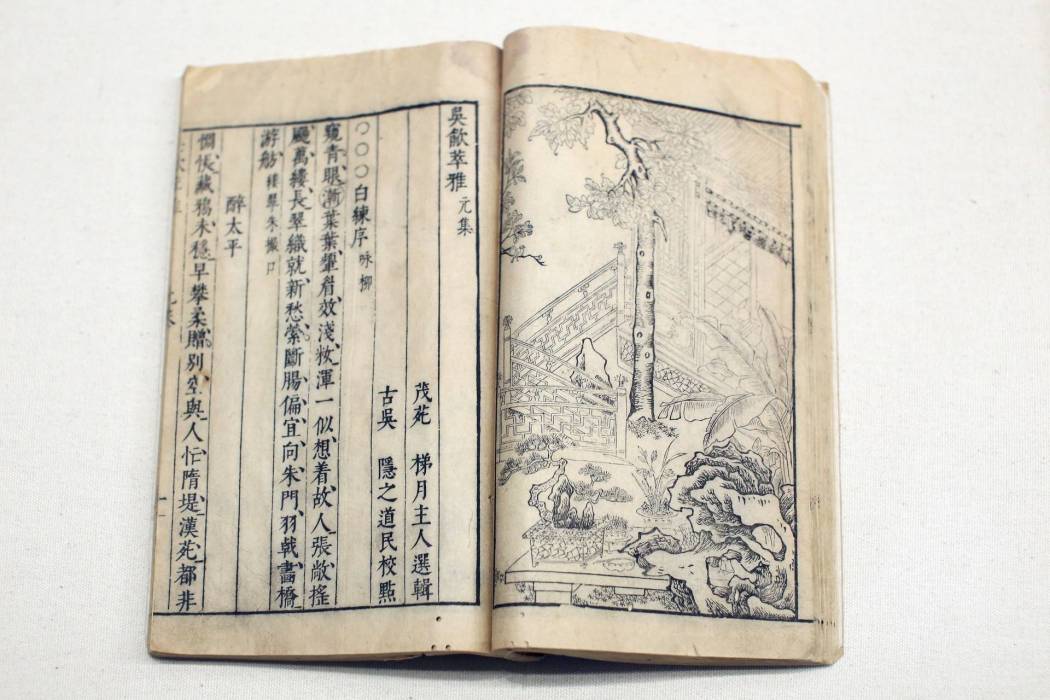 吳歈萃雅 元集
茂苑 梯月主人選輯
古吳 隱之道民校點
○○○白練序 咏柳
窺青眼漸葉葉顰眉效淺妝渾一似想着故人張敞搖
颺萬縷長翠織就新愁縈斷腸偏宜向朱門羽戟畫橋
游舫
醉太平
惆悵藏鴉未穩早攀柔贈別空與人忙隋堤漢苑都非